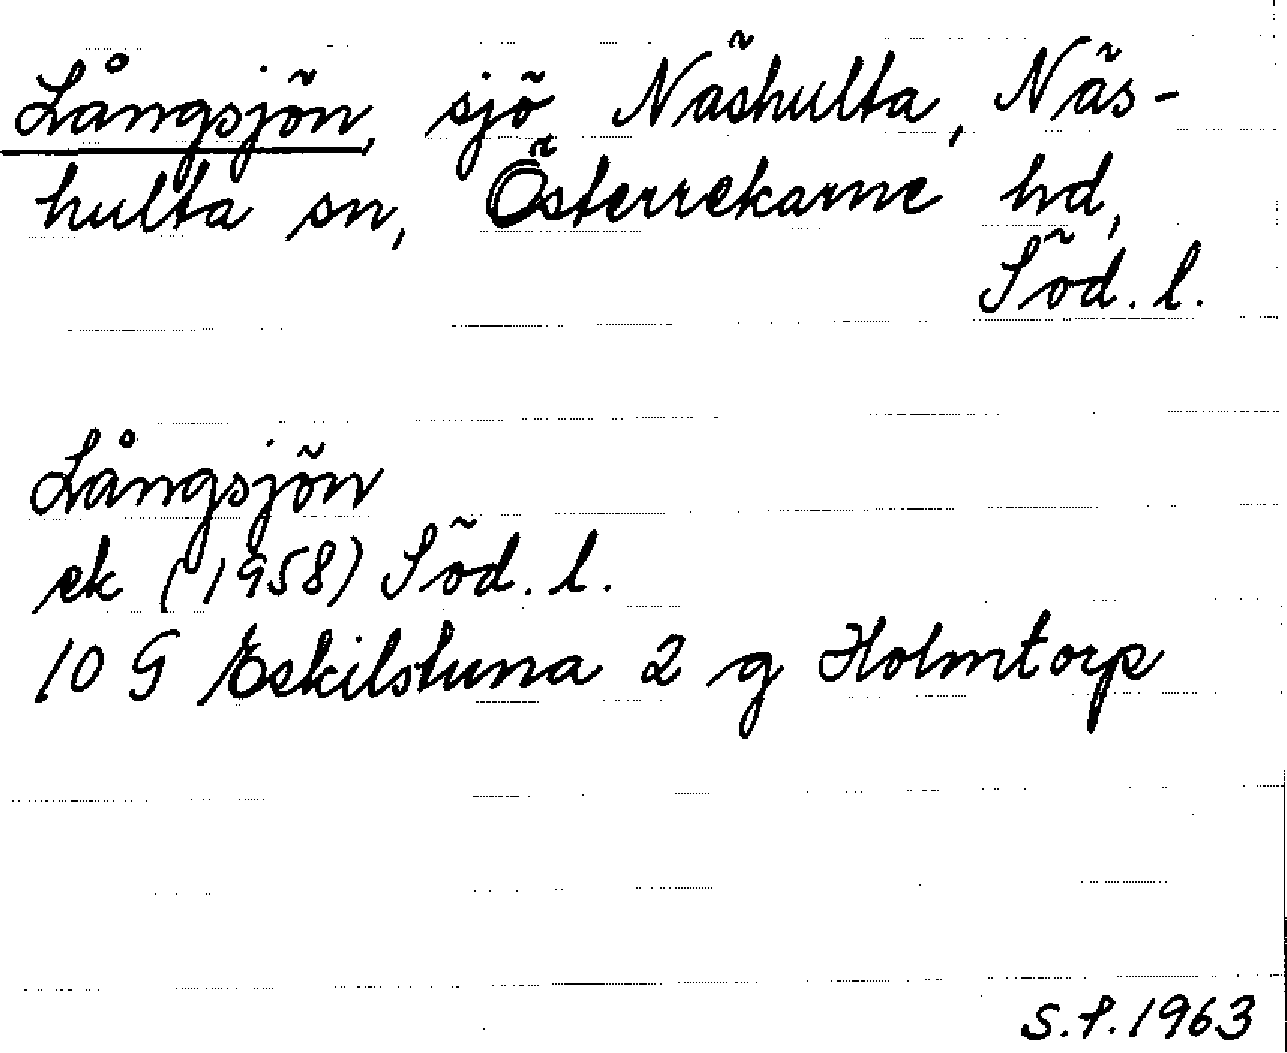 Långsjön, sjö, Näshulta, Näs-
hulta sn, Österrekarne hd,
Söd. l.
Långsjön
ek (1958) Söd. l.
10 G Eskilstuna 2 g Holmtorp
S.P. 1963